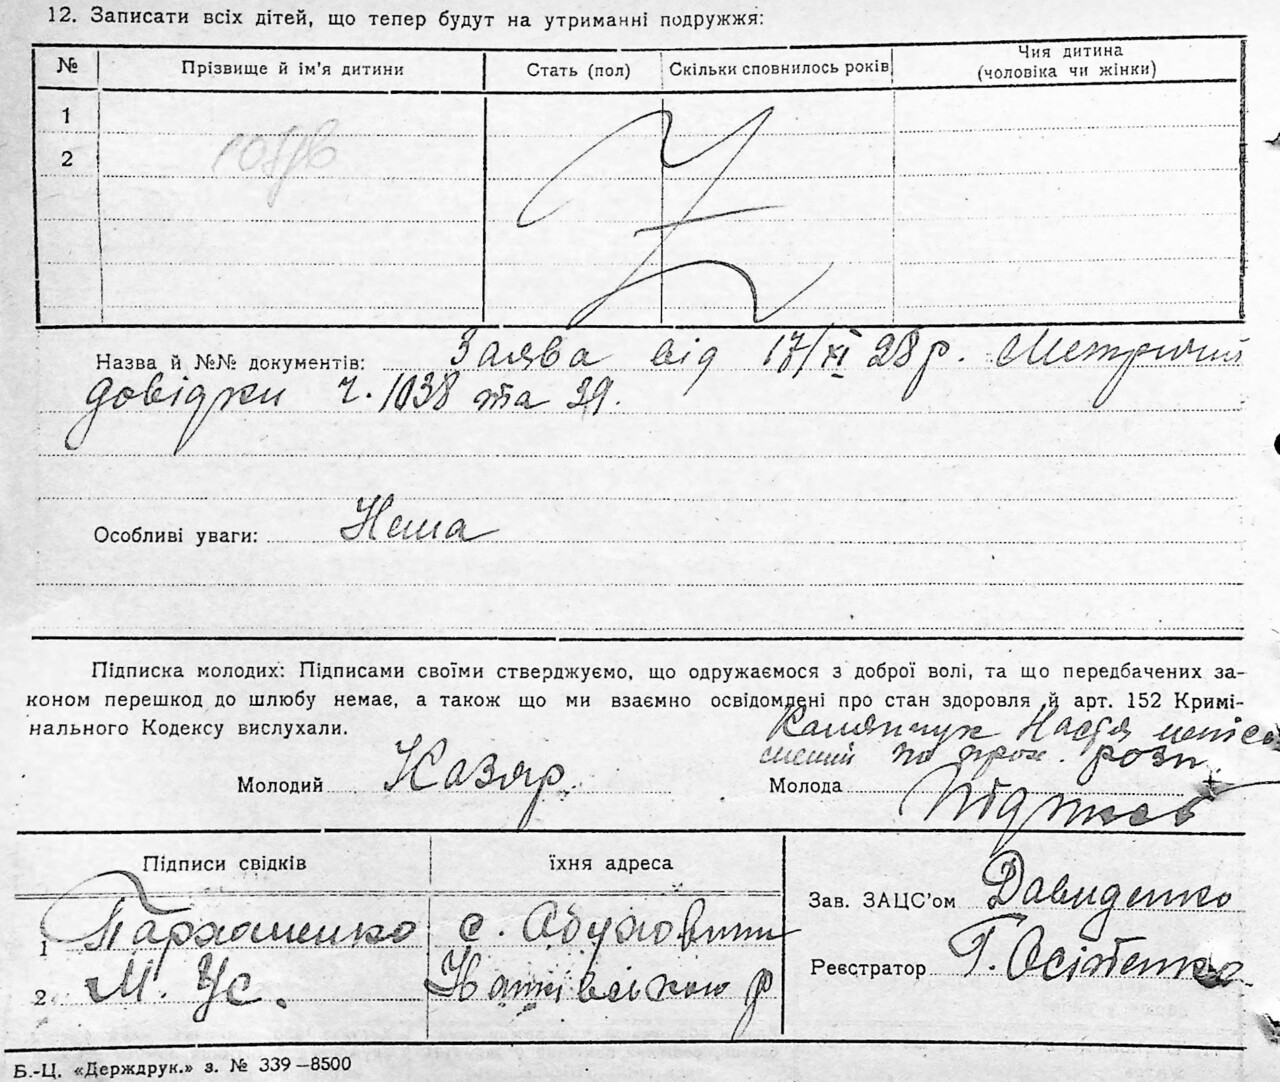 12. Записати всіх дітей, що тепер будут на утриманні подружжя:
№ Прізвище й ім'я дитини Стать (пол) Скільки сповнилось років Чия дитина
(чоловіка чи жінки)
1
2
Назва й №№ документів: Заява від 17/XI 28 р. Метричні
довідки ч. 1038 та 39.
Особливі уваги: Нема
Підписка молодих: Підписами своїми стверджуємо, що одружаємося з доброї волі, та що передбачених за-
коном перешкод до шлюбу немає, а також що ми взаємно освідомлені про стан здоровля й арт. 152 Кримі-
нального Кодексу вислухали.
Настя
розп
Молодий Казяр Молода
Підписи свідків їхня адреса
Зав. ЗАЦС'ом Давиденко
1 Пархоменко с.
Реєстратор Г. Осіпенко
2 М. Ус. р
Б.-Ц. «Держдрук.» з. № 339—8500